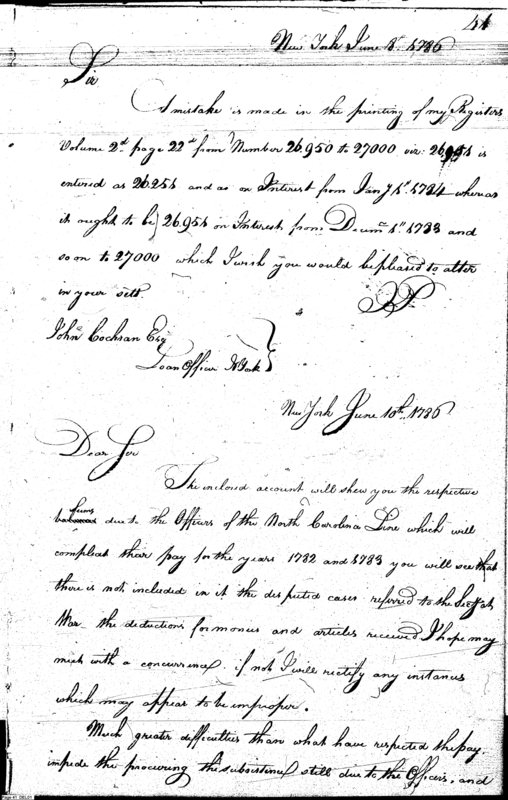 41
New York June 8th. 1786
Sir
A mistake is made in the printing of my Registers
Volume 2d. page 22d from Number 26,950 to 27000 viz: 26,951 is
entered as 26.251 and as on Interest from Jany 1st. 1784 whereas
it ought to be 26.951 on Interest from Decemr. 1st 1783 and
so on to 27000 which I wish you would be pleased to alter
in your sett.
JP.
John Cochran Esqr
Loan Officer N York
New York June 10th. 1786
Dear Sir
The inclosed account will shew you the respective
sums
due to the Officers of the North Carolina Line which will
compleat thair pay for the years 1782 and 1783 you will see that
there is not included in it the desputed cases referred to the Secy at
War. the deductions for monies and articles received I hope may
meet with a concurrence, if not I will rectify any instances
which may appear to be improper.
Much greater difficulties than what have respected the pay,
impede the procuring the subsistence still due to the Officers, and